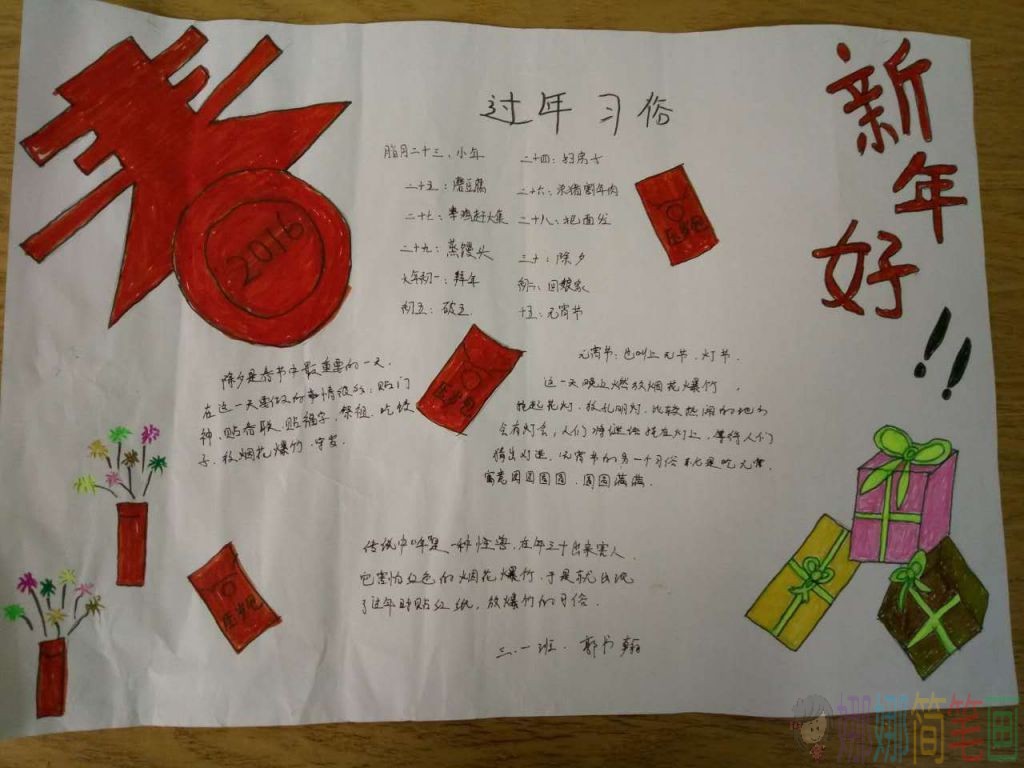 春
2016
过年习俗
新年好!!
腊月二十三、小年 二十四:扫房子
二十五:磨豆腐 二十六:杀猪割年肉
二十七:宰鸡赶大集 二十八:把面发
二十九:蒸馒头 三十:除夕
大年初一:拜年 初二:回娘家
初五:破五 十五:元宵节
压岁包
压岁包
压岁包
除夕是春节中最重要的一天.
在这一天要做的事情很多:贴门
神、贴春联、贴福字、祭祖、吃饺
子、放烟花爆竹、守岁.
元宵节:也叫上元节、灯节.
这一天晚上燃放烟花爆竹,
挂起花灯、放孔明灯.比较热闹的地方
会有灯会,人们将谜语挂在灯上,等待人们
猜出灯谜.元宵节的另一个习俗就是吃元宵.
寓意团团圆圆、圆圆满满.
传说中"年"是一种怪兽.在年三十出来害人.
它害怕红色的烟花爆竹.于是就出现
了过年时贴红纸,放爆竹的习俗.
三.一班.郭书翰
娜娜简笔画